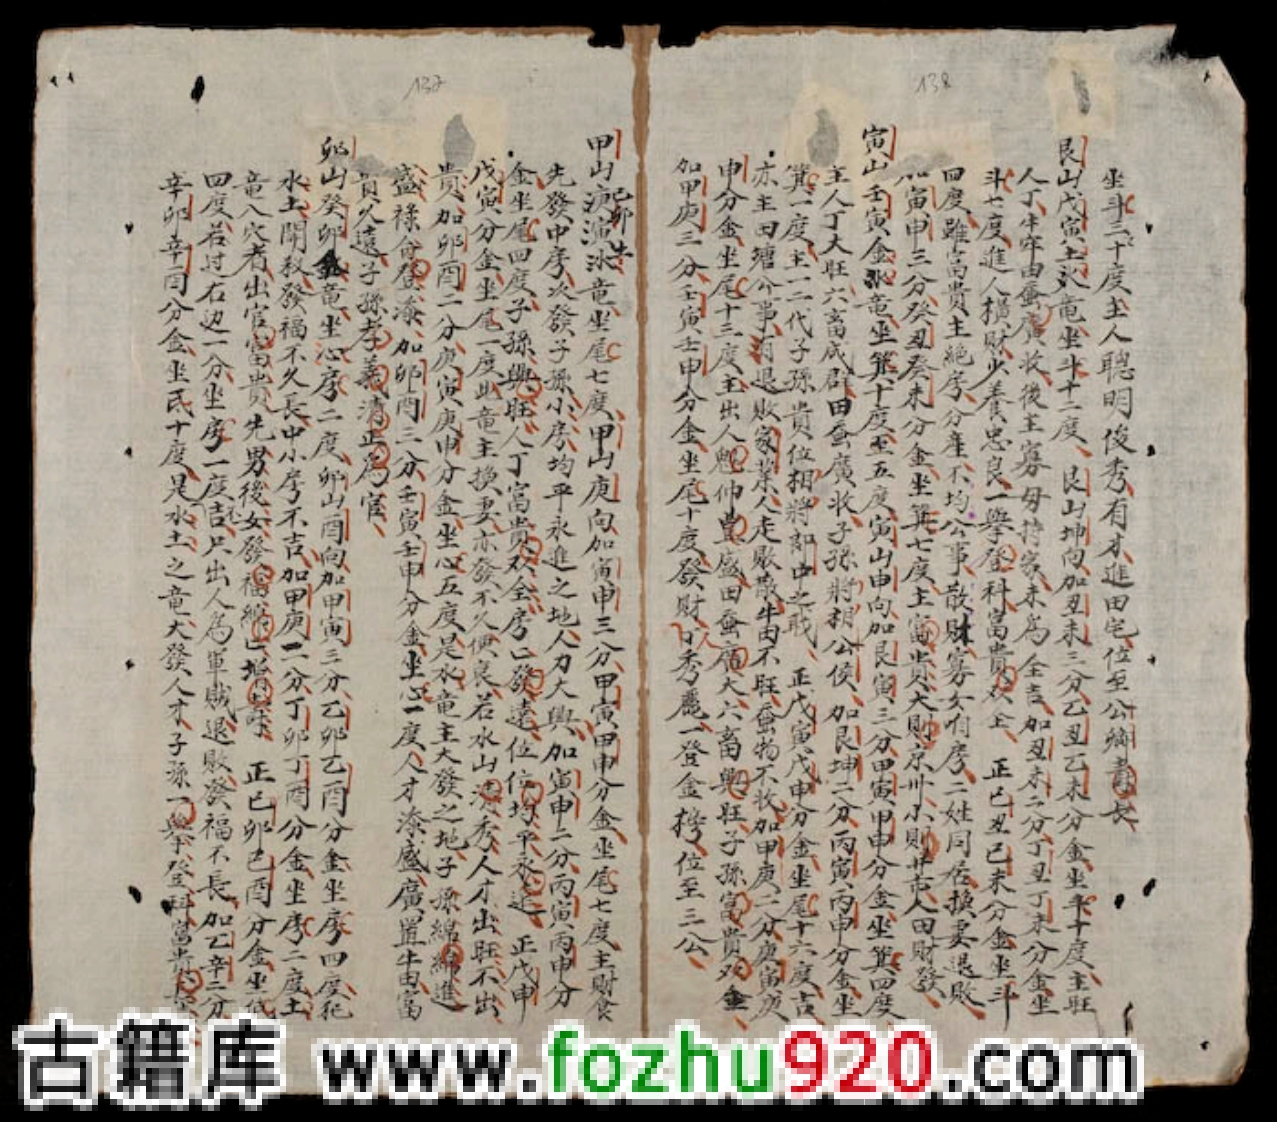 138
坐斗二十度主人聰明俊秀有才進田宅位至公卿壽長
艮山戊寅土氶竜坐斗十二度艮山坤向加丑未三分乙丑乙未分金坐斗十度主旺
人丁牛羊田蚕廣收後主寡母持家未為全吉加丑未二分丁丑丁未分金坐
斗七度進人横財少養忠良一舉登科富貴双全正己丑己未分金坐斗
四度雖富貴主絶房分產不均公事散財寡女有房二姓同居換妻退敗
加寅申三分癸丑癸未分金坐箕七度主富貴大則京州小則廿市人田財發
寅山壬寅金氶竜坐箕十度至五度寅山申向加艮寅三分甲寅甲申分金坐箕四度
主人丁大旺六畜成群田蚕廣收子孫將相公侯加艮坤二分丙寅丙申分金坐
箕一度主一二代子孫貴位相將郎中之戝正戊寅戊申分金坐尾十六度吉
亦主田塘公事有退敗家業人走敗散牛田不旺蚕物不收加甲庚二分庚寅庚
申分金坐尾十三度主出人魁仲豊盛田蚕廣大六畜興旺子孫富貴双金
如甲庚三分壬寅壬申分金坐尾十度發財人秀麗一登金榜位至三公
137
甲山 己卯 竜坐尾七度甲山庚向加寅申三分甲寅甲申分金坐尾七度主財食
先發中房次發子孫小房均平永進之地人力大興加寅申二分丙寅丙申分
金坐尾四度子孫興旺人丁富貴双全房亡發達位位均平永遠正戊申
戊寅分金坐尾一度此竜主換妻亦發不久便良若水山清秀人才出旺不出
貴加卯酉二分庚寅庚申分金坐心五度是水竜主大發之地子孫綿綿進
盛祿合登添加卯酉三分壬寅壬申分金坐心一度人才添盛廣置牛田富
貴久遠子孫孝義清正為官
卯山癸卯金竜坐心房二度卯山酉向加甲寅三分乙卯乙酉分金坐房四度犯
水土開殺發福不久長中小房不吉加甲庚二分丁卯丁酉分金坐房二度土
竜八穴者出官富貴先男後女發福綿亡增壽正己卯己酉分金坐氐
四度若过右边一分坐房一度吉只出人為軍賊退敗發福不長加乙辛二分
辛卯辛酉分金坐氐十度是水土之竜大發人才子孫一舉登科富貴
古籍库 www.fozhu920.com